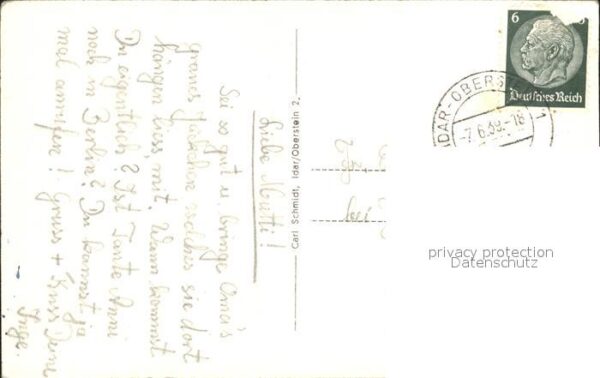 Liebe Mutti!
Sei so gut u. bringe Oma's
graues Jäckchen welches sie dort
hängen liess, mit. Wann kommst
Du eigentlich? Ist Tante Anni
noch in Berlin? Du kannst ja
mal anrufen! Gruss + Kuss Deine
Inge.
Carl Schmidt, Idar/Oberstein 2,
6
Deutsches Reich
IDAR-OBERST
1
-7.6.39.-18
bei
privacy protection
Datenschutz